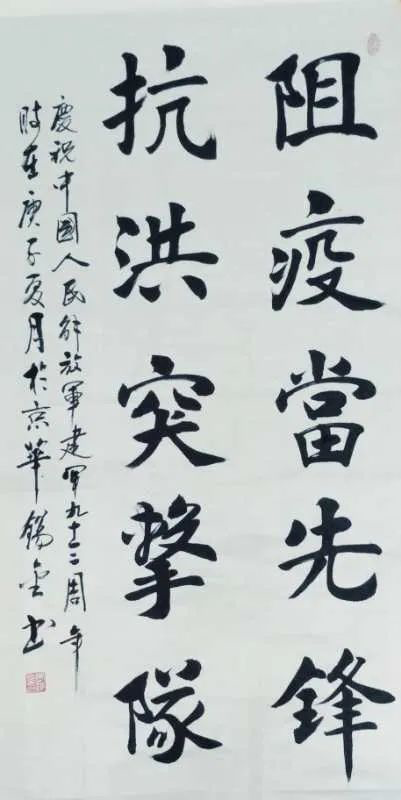 阻疫當先鋒
抗洪突擊隊
慶祝中國人民解放軍建軍九十三周年
時在庚子夏月於京華錫金书